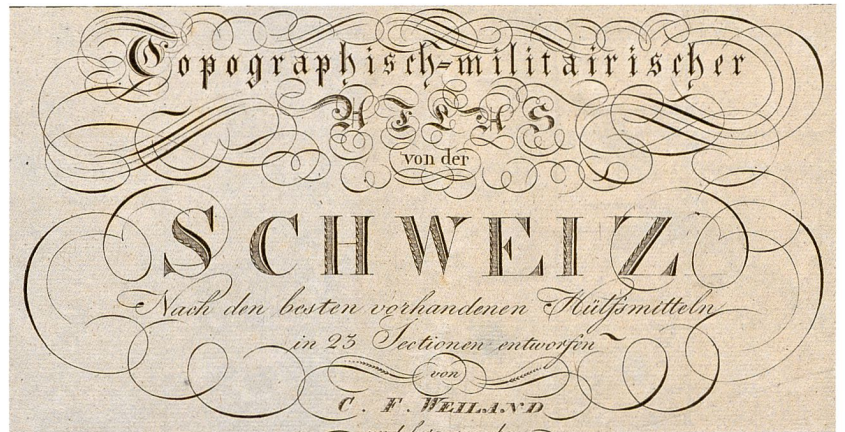 Topographisch-militairischer
ATLAS
von der
SCHWEIZ
Nach den besten vorhandenen Hülfsmitteln
in 23 Sectionen entworfen
von
C. F. WEILAND